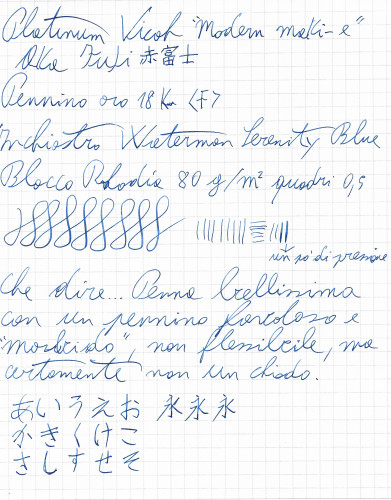 Platinum Vicoh "Modern maki-e"
Aka Fuji 赤富士
Pennino oro 18 K <F>
Inchiostro Waterman Serenity Blue
Blocco Rhodia 80 g/m² quadri 0,5
un po' di pressione
Che dire... Penna bellissima
con un pennino favoloso e
"morbido", non flessibile, ma
certamente non un chiodo.
あいうえお 永永永
かきくけこ
さしすせそ